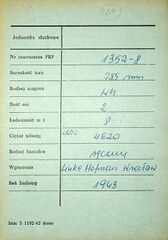 Jednostka służbowa
Nr inwentarza PKP 1352-8
Szerokość toru 785 mm
Rodzaj wagonu
Ilość osi 2
Ładowność w t. 8
Ciężar własny 4600 4620
Rodzaj hamulca ręczny
Wytwórnia Linke Hofman Wrocław
Rok budowy 1943